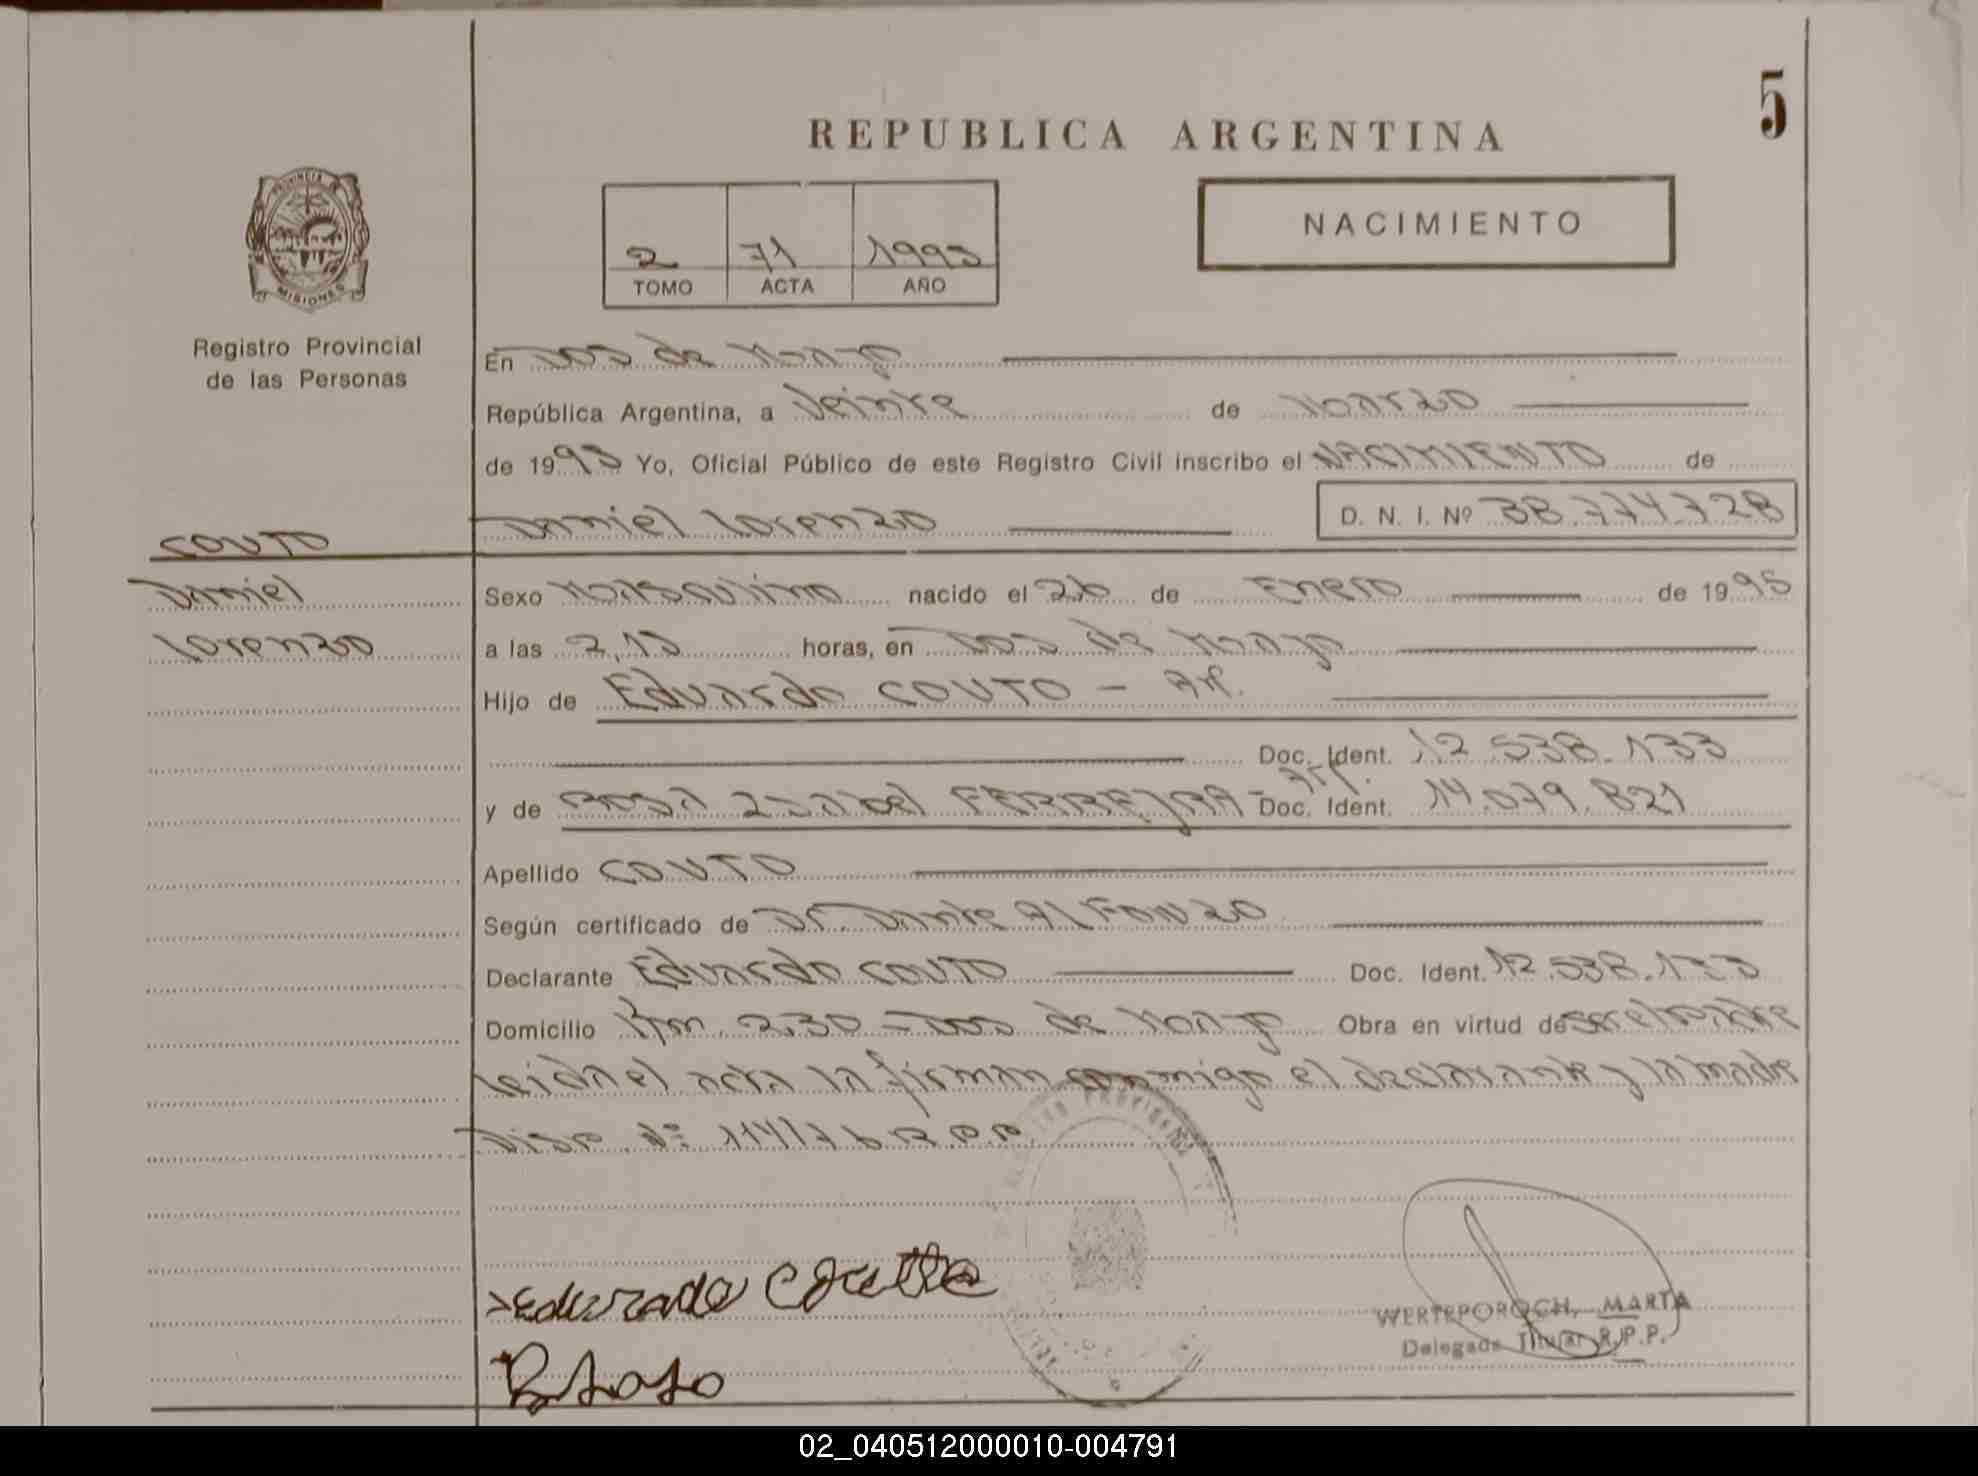 5
REPUBLICA ARGENTINA
NACIMIENTO
2 71 1995
TOMO ACTA AÑO
PROVINCIA DE
MISIONES
Registro Provincial
de las Personas
En Dos de Mayo
República Argentina, a veinte de Marzo
de 1995 Yo, Oficial Público de este Registro Civil inscribo el NACIMIENTO de
Daniel Lorenzo D. N. I. Nº 38.774.728
COUTO
Daniel
Lorenzo
Sexo Masculino nacido el 26 de Enero de 1995
a las 2,15 horas, en Dos de Mayo
Hijo de Eduardo COUTO - Ar.
Doc. Ident. 12.538.133
y de Rosa Isabel FERREJRA - Ar. Doc. Ident. 14.079.821
Apellido COUTO
Según certificado de Dr. Dante AlFONZO
Declarante Eduardo COUTO Doc. Ident. 12.538.133
Domicilio Km. 230 - Dos de Mayo Obra en virtud de ser el padre
Leida el acta la firman conmigo el declarante y la madre
Disp. Nº 114/76 R.P.P.
Eduardo
WERTEPOROCH, MARTA
Delegada Titular R.P.P.
02_040512000010-004791